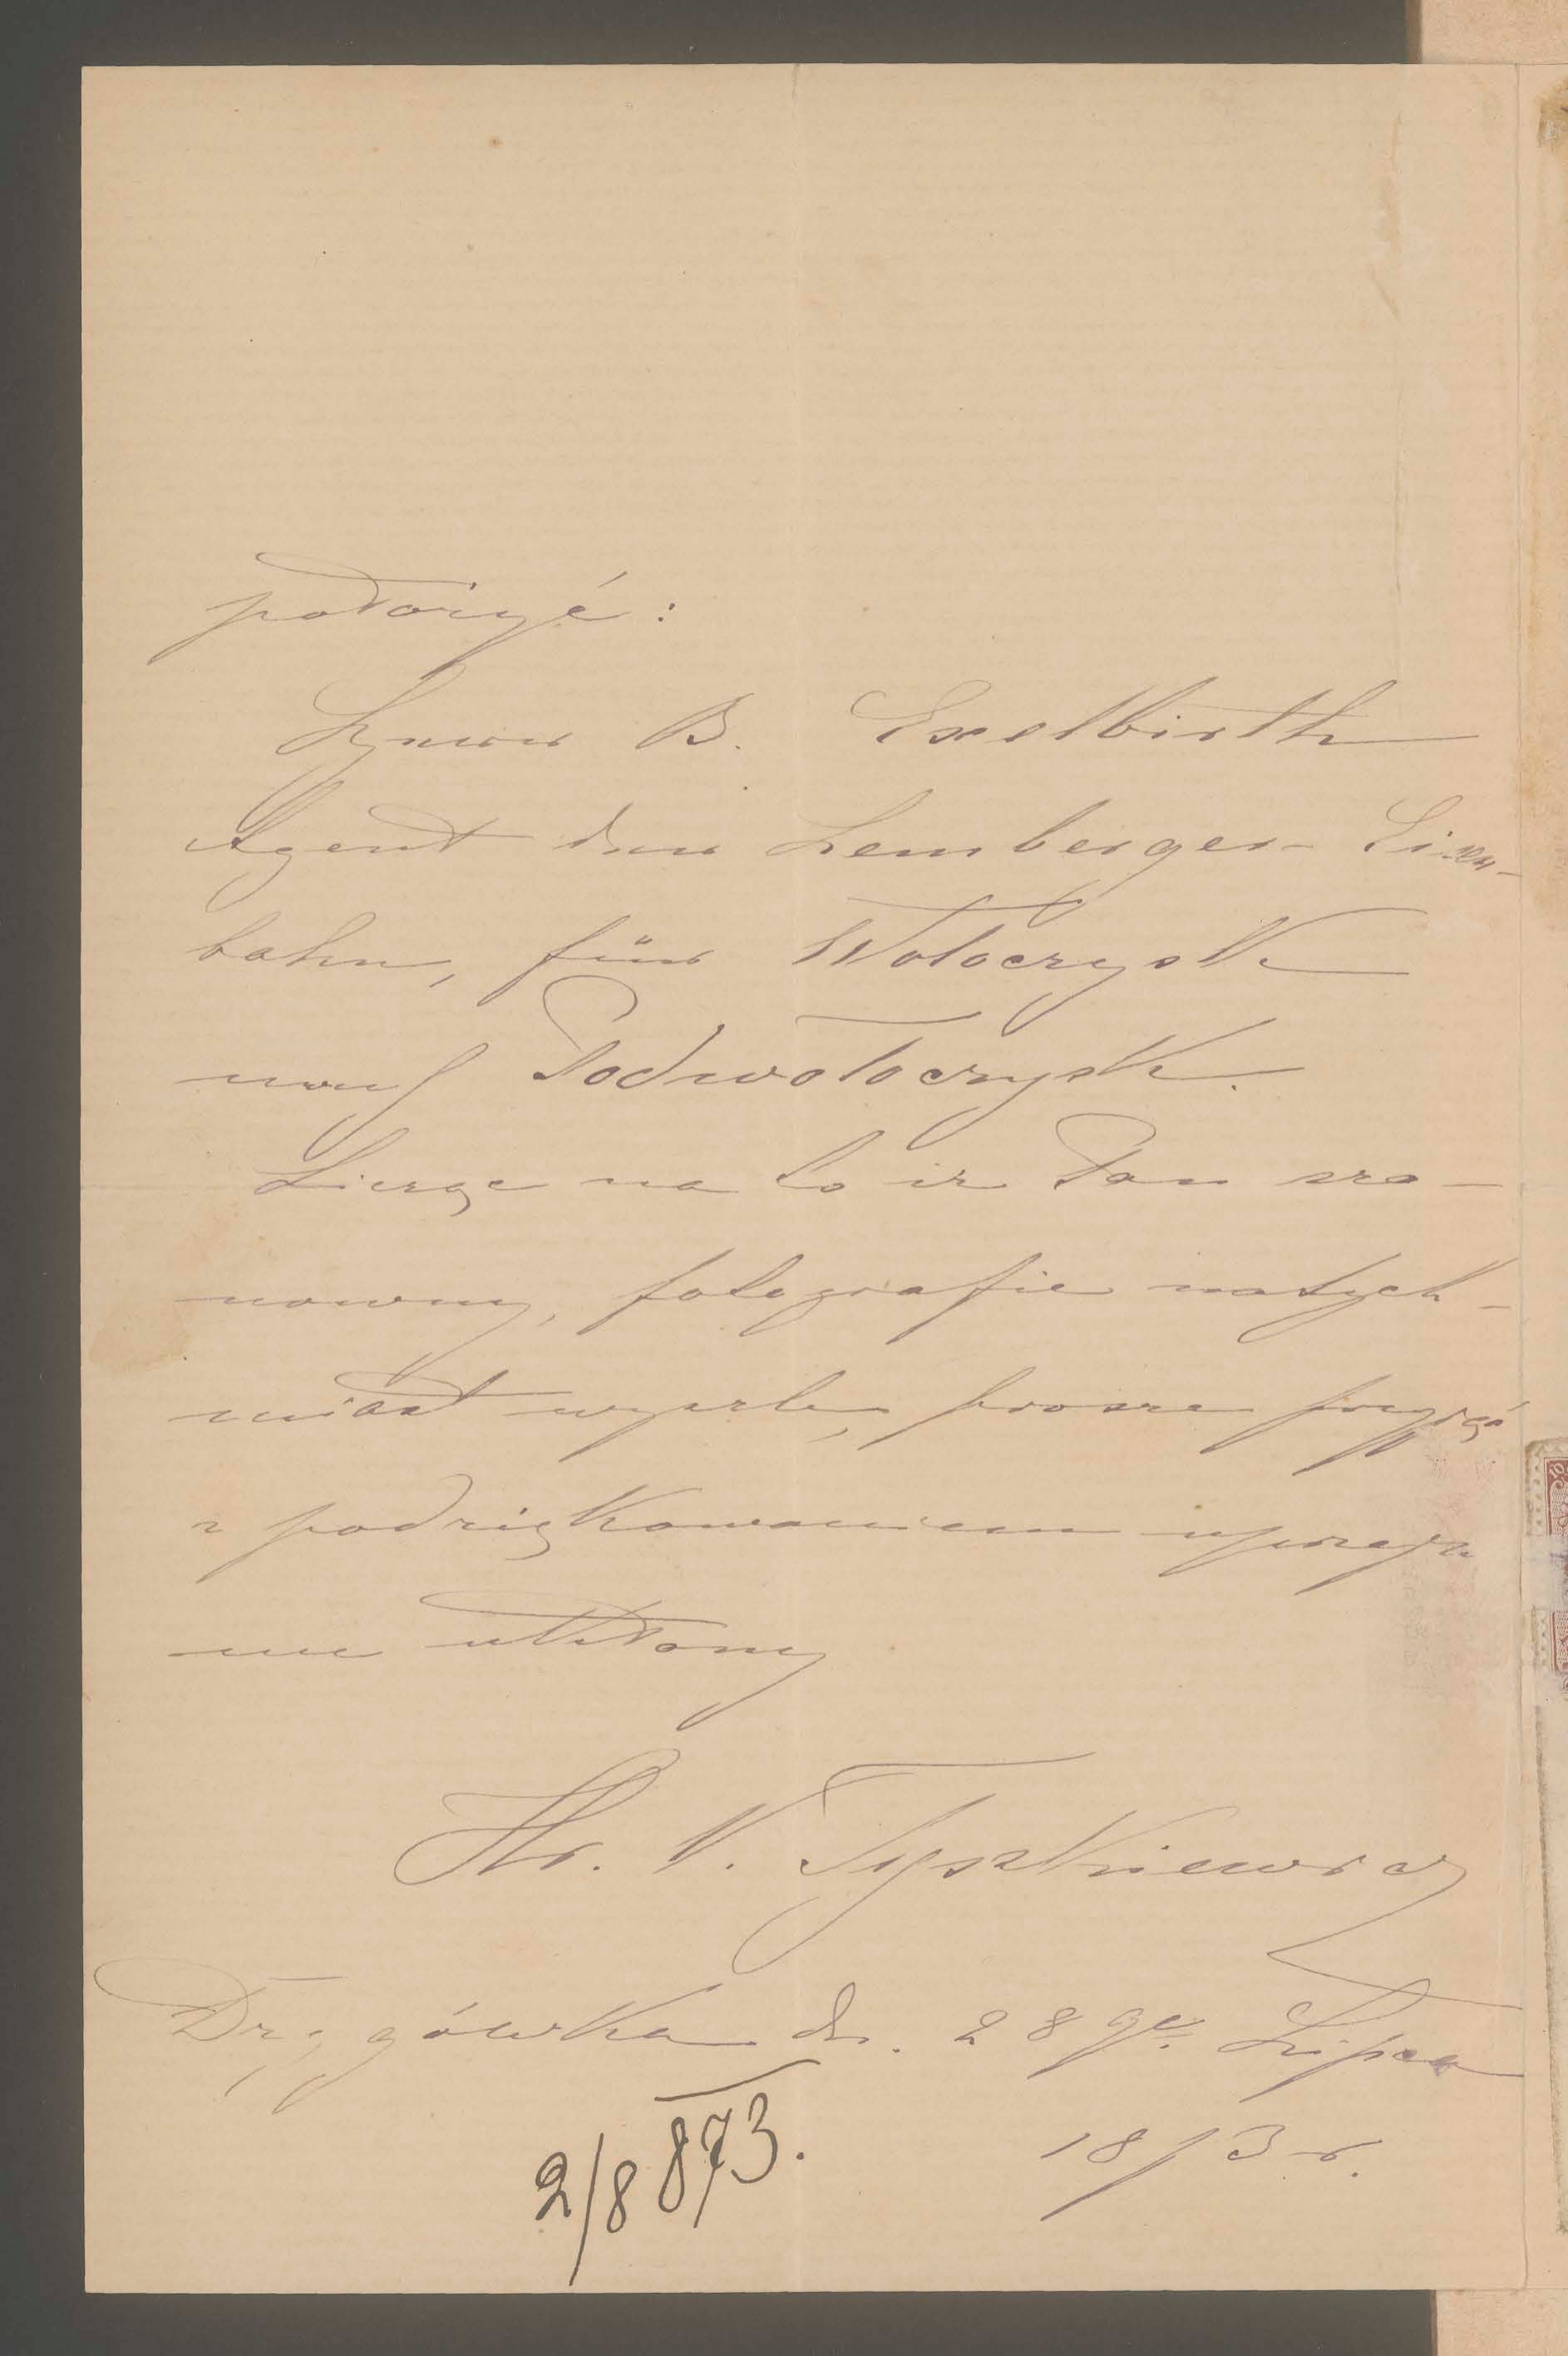 położyć:
Herrn B. Exelbirth
Agent der Lemberger-Eisen-
bahn, für Wołoczysk
nach Podwołoczysk.
Liczę na to iż Pan sza-
nowny, fotografie natych-
miast wyszle, proszę przyjąć
z podziękowaniem uprzej-
me ukłony
Hr. V. Tyszkiewicz
d. 28 go. Lipca
1873 r.
2/8 873.